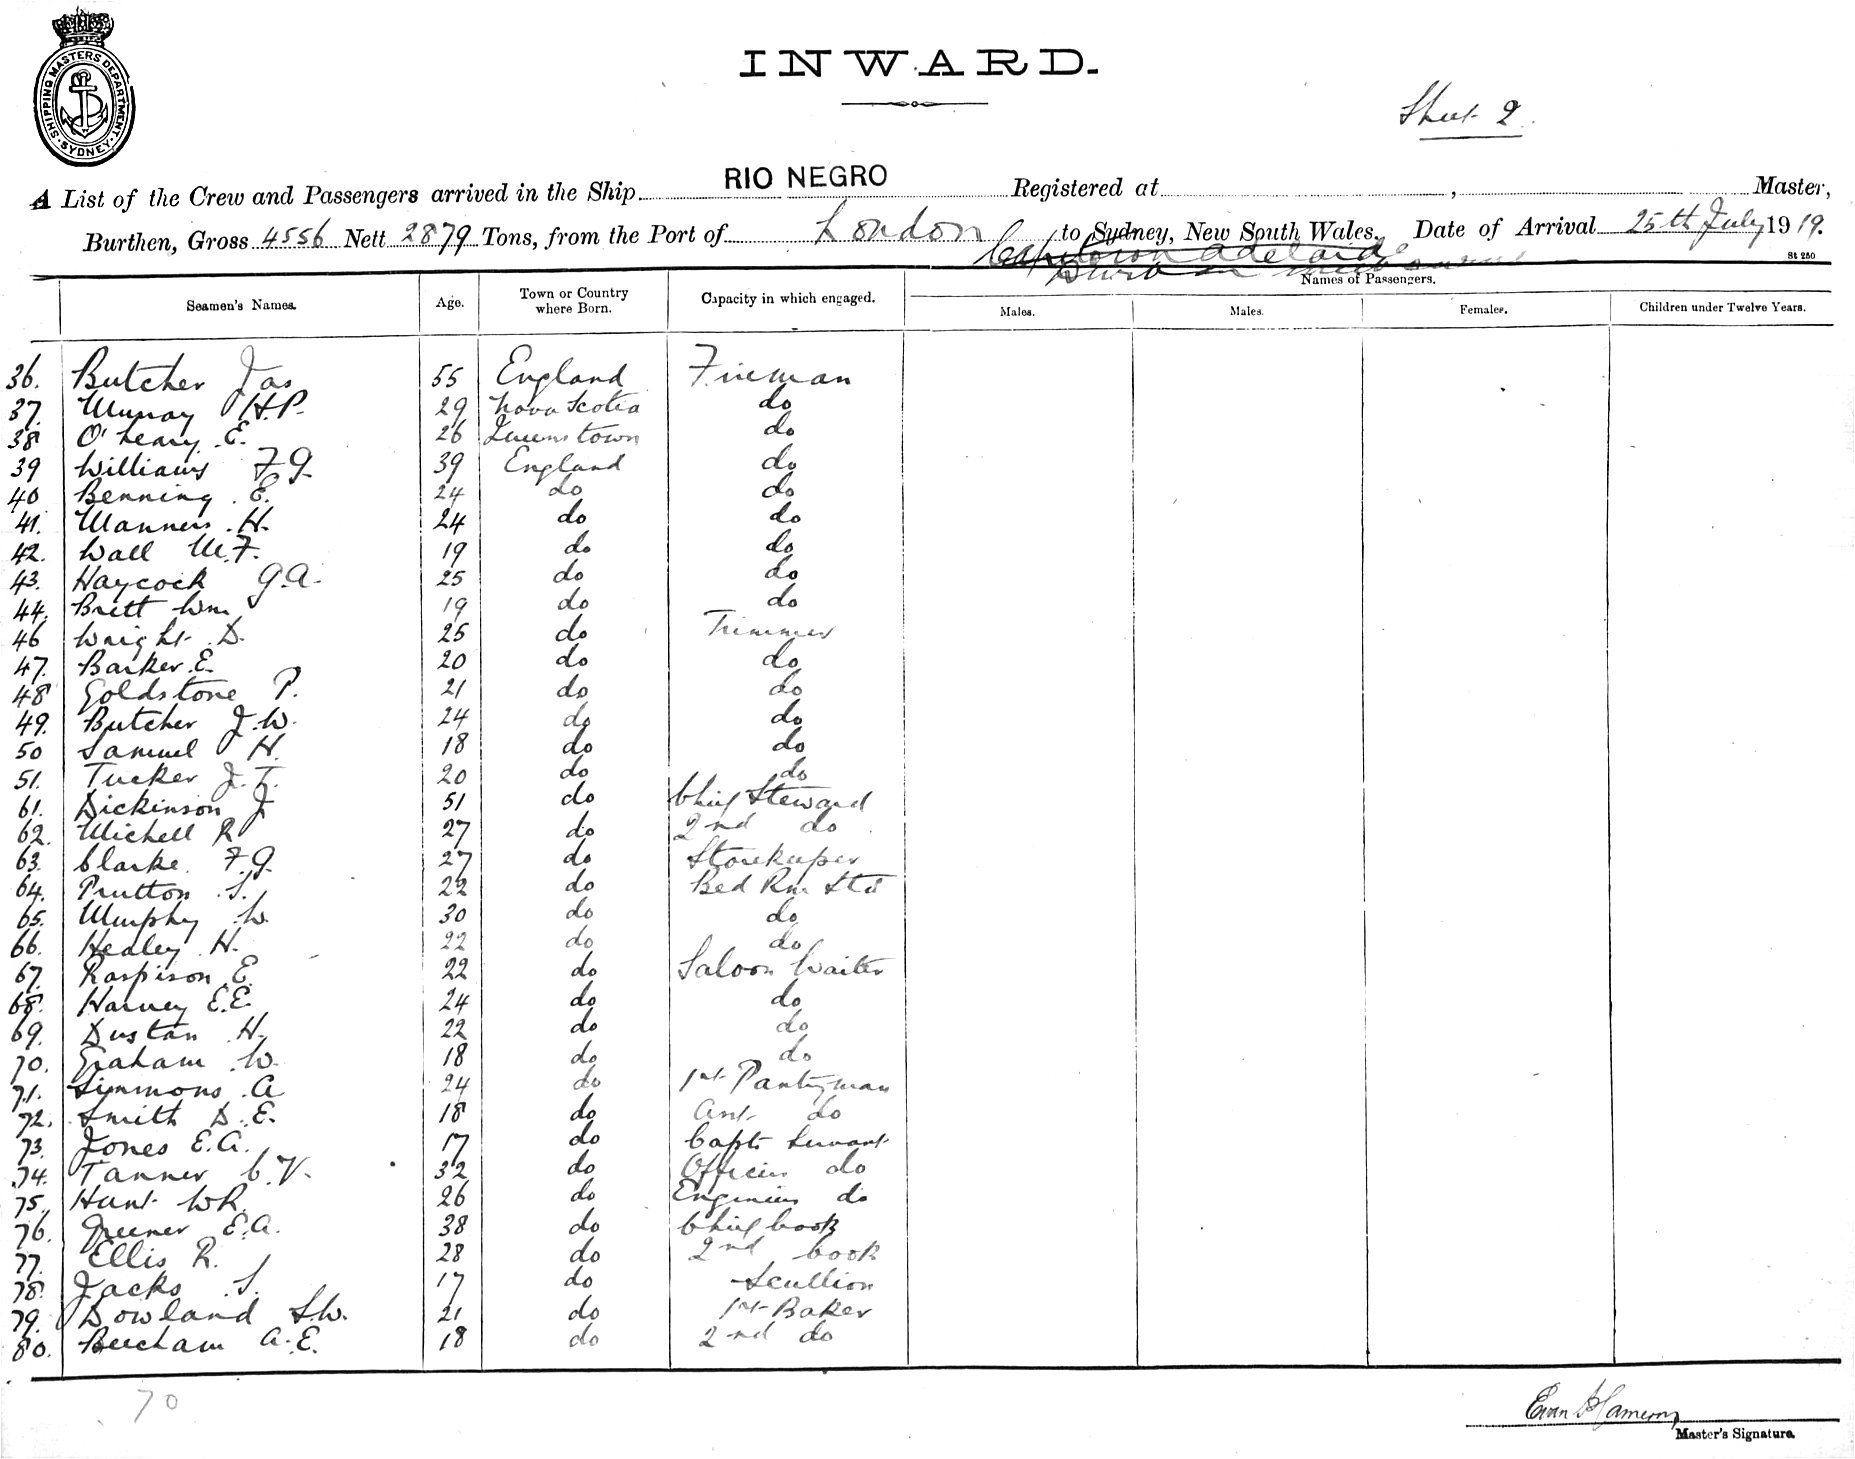 SHIPPING MASTERS DEPARTMENT. SYDNEY.
INWARD.
Sheet 2.
A List of the Crew and Passengers arrived in the Ship RIO NEGRO Registered at , Master,
Burthen, Gross 4556 Nett 2879 Tons, from the Port of London to Sydney, New South Wales. Date of Arrival 25th July 1919.
Capetown Adelaide
St 250
Names of Passengers.
Seamen's Names. Age. Town or Country where Born. Capacity in which engaged. Males. Males. Females. Children under Twelve Years.
36. Butcher Jas 55 England Fireman
37. Murray H.P. 29 Nova Scotia do
38 O'Leary E. 26 Queenstown do
39 Williams F.G. 39 England do
40 Benning E. 24 do do
41. Manners H. 24 do do
42. Wall M.F. 19 do do
43. Haycock G.A. 25 do do
44. Britt Wm 19 do do
46 Wright D. 25 do Trimmer
47. Barker E. 20 do do
48 Goldstone P. 21 do do
49. Butcher J.W. 24 do do
50 Samuel H. 18 do do
51. Tucker J.T. 20 do do
61. Dickinson J 51 do Chief Steward
62. Michell R 27 do 2nd do
63. Clarke F.G. 27 do Storekeeper
64. Prutton S. 22 do Bed Rm Std
65. Murphy W 30 do do
66. Healey H. 22 do do
67. Raspison E. 22 do Saloon Waiter
68. Harvey E.E. 24 do do
69. Dustan H. 22 do do
70. Graham W. 18 do do
71. Simmons A 24 do 1st Pantryman
72. Smith D.E. 18 do Asst do
73. Jones E.A. 17 do Capts Servant
74. Tanner C.V. 32 do Officers do
75. Hunt W.R. 26 do Engineers do
76. Greener E.A. 38 do Chief Cook
77. Ellis R. 28 do 2nd Cook
78. Jacks S. 17 do Scullion
79. Dowland S.W. 21 do 1st Baker
80. Beecham A.E. 18 do 2nd do
70
Evan Cameron
Master's Signature.